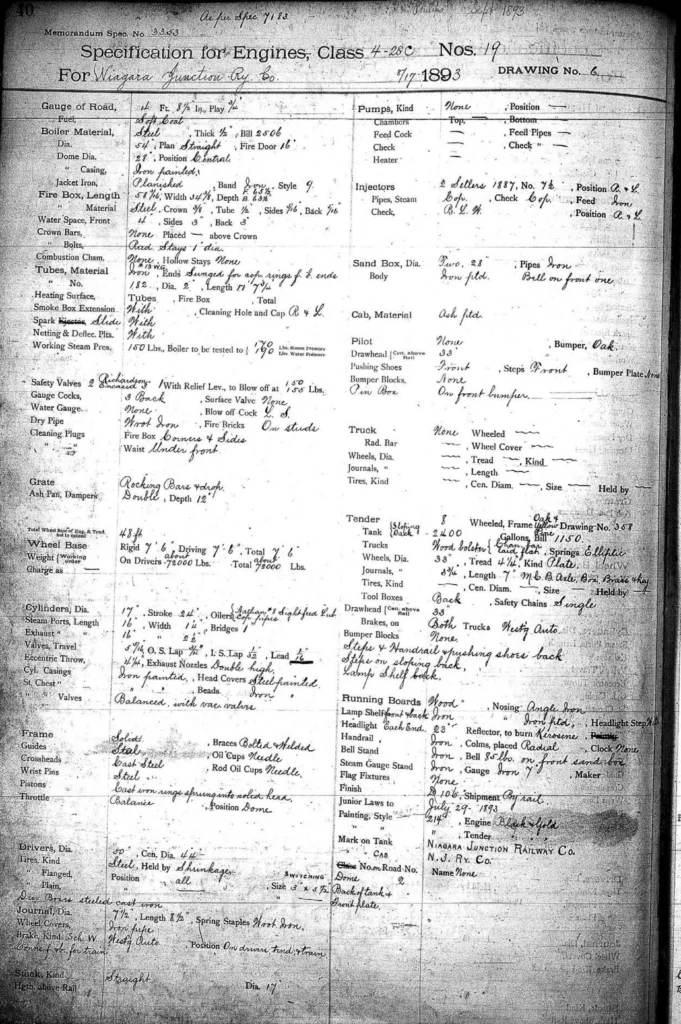 40
As per Spec 7183
Sept 1893
Memorandum Spec. No. 3353
Specification for Engines, Class 4-28C Nos. 19
For Niagara Junction Ry. Co. 7/17 1893 DRAWING No. 6.
Gauge of Road, 4 Ft. 8½ In., Play ¾"
Fuel, Soft Coal
Boiler Material, Steel, Thick ½", Bill 2506
Dia. 54", Plan Straight, Fire Door 16"
Dome Dia. 28", Position Central
" Casing, Iron painted
Jacket Iron, Planished, Band Iron, Style 9.
Fire Box, Length 58 1/16", Width 34 7/8, Depth
" Material Steel, Crown 3/8", Tube ½", Sides 5/16", Back 5/16"
Water Space, Front 4", Sides 3", Back 3"
Crown Bars, None Placed — above Crown
" Bolts, Rad. Stays 1" dia.
Combustion Cham. None, Hollow Stays None
Tubes, Material Iron, Ends Swaged for cop. rings f. f. ends
" No. 182, Dia. 2", Length 11' 7¾"
Heating Surface, Tubes , Fire Box , Total
Smoke Box Extension With , Cleaning Hole and Cap R & L.
Spark Ejector, Slide With
Netting & Deflec. Plts. With
Working Steam Pres. 150 Lbs., Boiler to be tested to 170 Lbs. Steam Pressure 190 Lbs. Water Pressure
Safety Valves 2 Richardson Encased, 1 With Relief Lev., to Blow off at 150 155 Lbs.
Gauge Cocks, 3 Back , Surface Valve None
Water Gauge. None , Blow off Cock L. S.
Dry Pipe Wrot Iron , Fire Bricks On studs
Cleaning Plugs Fire Box Corners & Sides
" " Waist Under front
Grate Rocking Bars & drop
Ash Pan, Dampers, Double, Depth 12"
Total Wheel Base of Eng. & Tend. not to exceed 48 ft
Wheel Base Rigid 7' 6", Driving 7' 6", Total 7' 6"
Weight (Working order) On Drivers about 72000 Lbs. Total about 72000 Lbs.
Charge as —
Cylinders, Dia. 17", Stroke 24", Oilers Nathan #8 Sightfeed Lub Cop. pipes
Steam Ports, Length 16", Width 1¼", Bridges 1"
Exhaust " 16" " 2½"
Valves, Travel , O. S. Lap , I. S. Lap , Lead 1/16
Eccentric Throw, , Exhaust Nozzles Double high.
Cyl. Casings Iron painted, Head Covers Steel painted
St. Chest " " , Beads Iron "
" Valves Balanced, with vac. valves
Frame Solid , Braces Bolted & Welded
Guides Steel , Oil Cups Needle
Crossheads Cast Steel , Rod Oil Cups Needle,
Wrist Pins Steel
Pistons Cast iron rings sprung into solid head.
Throttle Balance , Position Dome
Drivers, Dia. 50", Cen. Dia. 44"
Tires, Kind Steel, Held by Shrinkage
" Flanged, Position all SWITCHING Size 3 x 5½
" Plain,
Driv. Boxes steeled cast iron
Journal, Dia. 7½", Length 8½", Spring Staples Wrot Iron.
Wheel Covers, Iron pipe
Brake, Kind Sch. W. Westg Auto , Position On drivers tend & train
Stack, Kind Straight
Hgth. above Rail Dia. 17"
Pumps, Kind None , Position —
Chambers Top, — , Bottom
Feed Cock — , Feed Pipes —
Check — , Check " —
Heater —
Injectors 2 Sellers 1887, No. 7½ , Position R. & L.
Pipes, Steam Cop. , Check Cop. , Feed Iron
Check, B. L. W. , Position R. & L.
Sand Box, Dia. Two, 28" , Pipes Iron
Body Iron ptd. Bell on front one
Cab, Material Ash ptd
Pilot None , Bumper, Oak
Drawhead (Cen. above Rail) 33"
Pushing Shoes Front , Steps Front , Bumper Plate None
Bumper Blocks, None
Pin Box On front bumper. —
Truck None Wheeled —
Rad. Bar — , Wheel Cover —
Wheels, Dia. — , Tread — , Kind —
Journals, " — , Length —
Tires, Kind — , Cen. Diam. — , Size — Held by —
Tender 8 Wheeled, Frame Oak & Yellow Pine Drawing No. 358
Tank (Sloping Back) 2400 Gallons, Bill 1150.
Trucks Wood bolster , Springs Elliptic
Wheels, Dia. 33", Tread 4¼", Kind Plate.
Journals, " 3¾", Length 7" M.C.B. Axle, Box Brass & key
Tires, Kind — , Cen. Diam. — , Size — Held by —
Tool Boxes Back , Safety Chains Single
Drawhead (Cen. above Rail) 33"
Brakes, on Both Trucks Westg Auto.
Bumper Blocks None.
Steps & Handrail & pushing shoes back
Steps on sloping back.
Lamp Shelf back.
Running Boards Wood , Nosing Angle Iron
Lamp Shelf front & back Iron " Iron ptd., Headlight Step
Headlight Each End. 23" Reflector, to burn Kerosene
Handrail Iron, Colms, placed Radial , Clock None
Bell Stand Iron, Bell 85 lb. on front sand box
Steam Gauge Stand Iron, Gauge Iron 7" , Maker
Flag Fixtures None
Finish D 106, Shipment By rail
Junior Laws to July 29 - 1893
Painting, Style 214, Engine Black & Gold
" " , Tender "
Mark on Tank NIAGARA JUNCTION RAILWAY CO.
" CAB N. J. RY. CO.
Class No. on Road No. 2 Name None
Dome
Back of tank &
Front plate